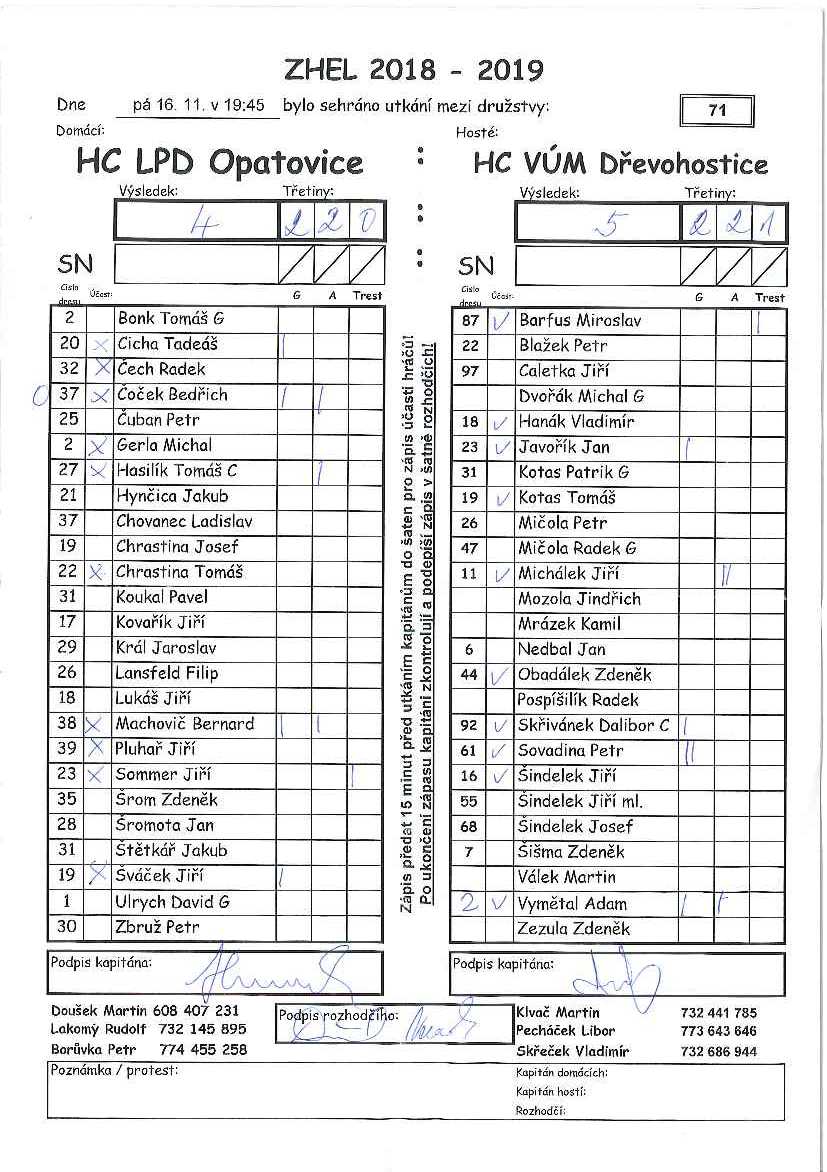 ZHEL 2018 - 2019
Dne pá 16. 11. v 19:45 bylo sehráno utkání mezi družstvy: 71
Domácí: Hosté:
HC LPD Opatovice : HC VÚM Dřevohostice
Výsledek: Třetiny: Výsledek: Třetiny:
4 2 2 0 : 5 2 2 1
SN : SN
Číslo dresu Účast: G A Trest
2 Bonk Tomáš G
20 x Cicha Tadeáš |
32 x Čech Radek
0 37 x Čoček Bedřich | |
25 Čuban Petr
2 x Gerla Michal
27 x Hasilík Tomáš C |
21 Hynčica Jakub
37 Chovanec Ladislav
19 Chrastina Josef
22 x Chrastina Tomáš
31 Koukal Pavel
17 Kovařík Jiří
29 Král Jaroslav
26 Lansfeld Filip
18 Lukáš Jiří
38 x Machovič Bernard | |
39 x Pluhař Jiří
23 x Sommer Jiří |
35 Šrom Zdeněk
28 Šromota Jan
31 Štětkář Jakub
19 x Šváček Jiří |
1 Ulrych David G
30 Zbruž Petr
Zápis předat 15 minut před utkáním kapitánům do šaten pro zápis účasti hráčů!
Po ukončení zápasu kapitáni zkontrolují a podepíší zápis v šatně rozhodčích!
Číslo dresu Účast: G A Trest
87 ✓ Barfus Miroslav |
22 Blažek Petr
97 Caletka Jiří
Dvořák Michal G
18 ✓ Hanák Vladimír
23 ✓ Javořík Jan |
31 Kotas Patrik G
19 ✓ Kotas Tomáš
26 Mičola Petr
47 Mičola Radek G
11 ✓ Michálek Jiří ||
Mozola Jindřich
Mrázek Kamil
6 Nedbal Jan
44 ✓ Obadálek Zdeněk
Pospíšilík Radek
92 ✓ Skřivánek Dalibor C |
61 ✓ Sovadina Petr ||
16 ✓ Šindelek Jiří
55 Šindelek Jiří ml.
68 Šindelek Josef
7 Šišma Zdeněk
Válek Martin
2 ✓ Vymětal Adam | |
Zezula Zdeněk
Podpis kapitána: Podpis kapitána:
Doušek Martin 608 407 231
Lakomý Rudolf 732 145 895
Borůvka Petr 774 455 258
Podpis rozhodčího:
Klvač Martin 732 441 785
Pecháček Libor 773 643 646
Skřeček Vladimír 732 686 944
Poznámka / protest:
Kapitán domácích:
Kapitán hostí:
Rozhodčí: